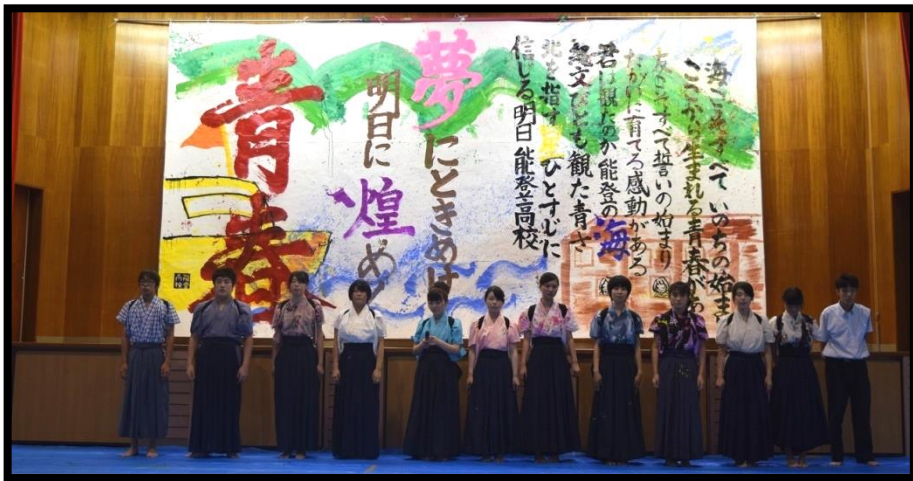 海こそすべて いのちの始ま
ここから生まれる青春があ
友こそすべて誓いの始まり
たがいに育てる感動がある
君は観たのか能登の海
縄文びとも観た青さ
北を指す ひとすじに
信じる明日 能登高校
夢にときめけ
明日に煌め
青春